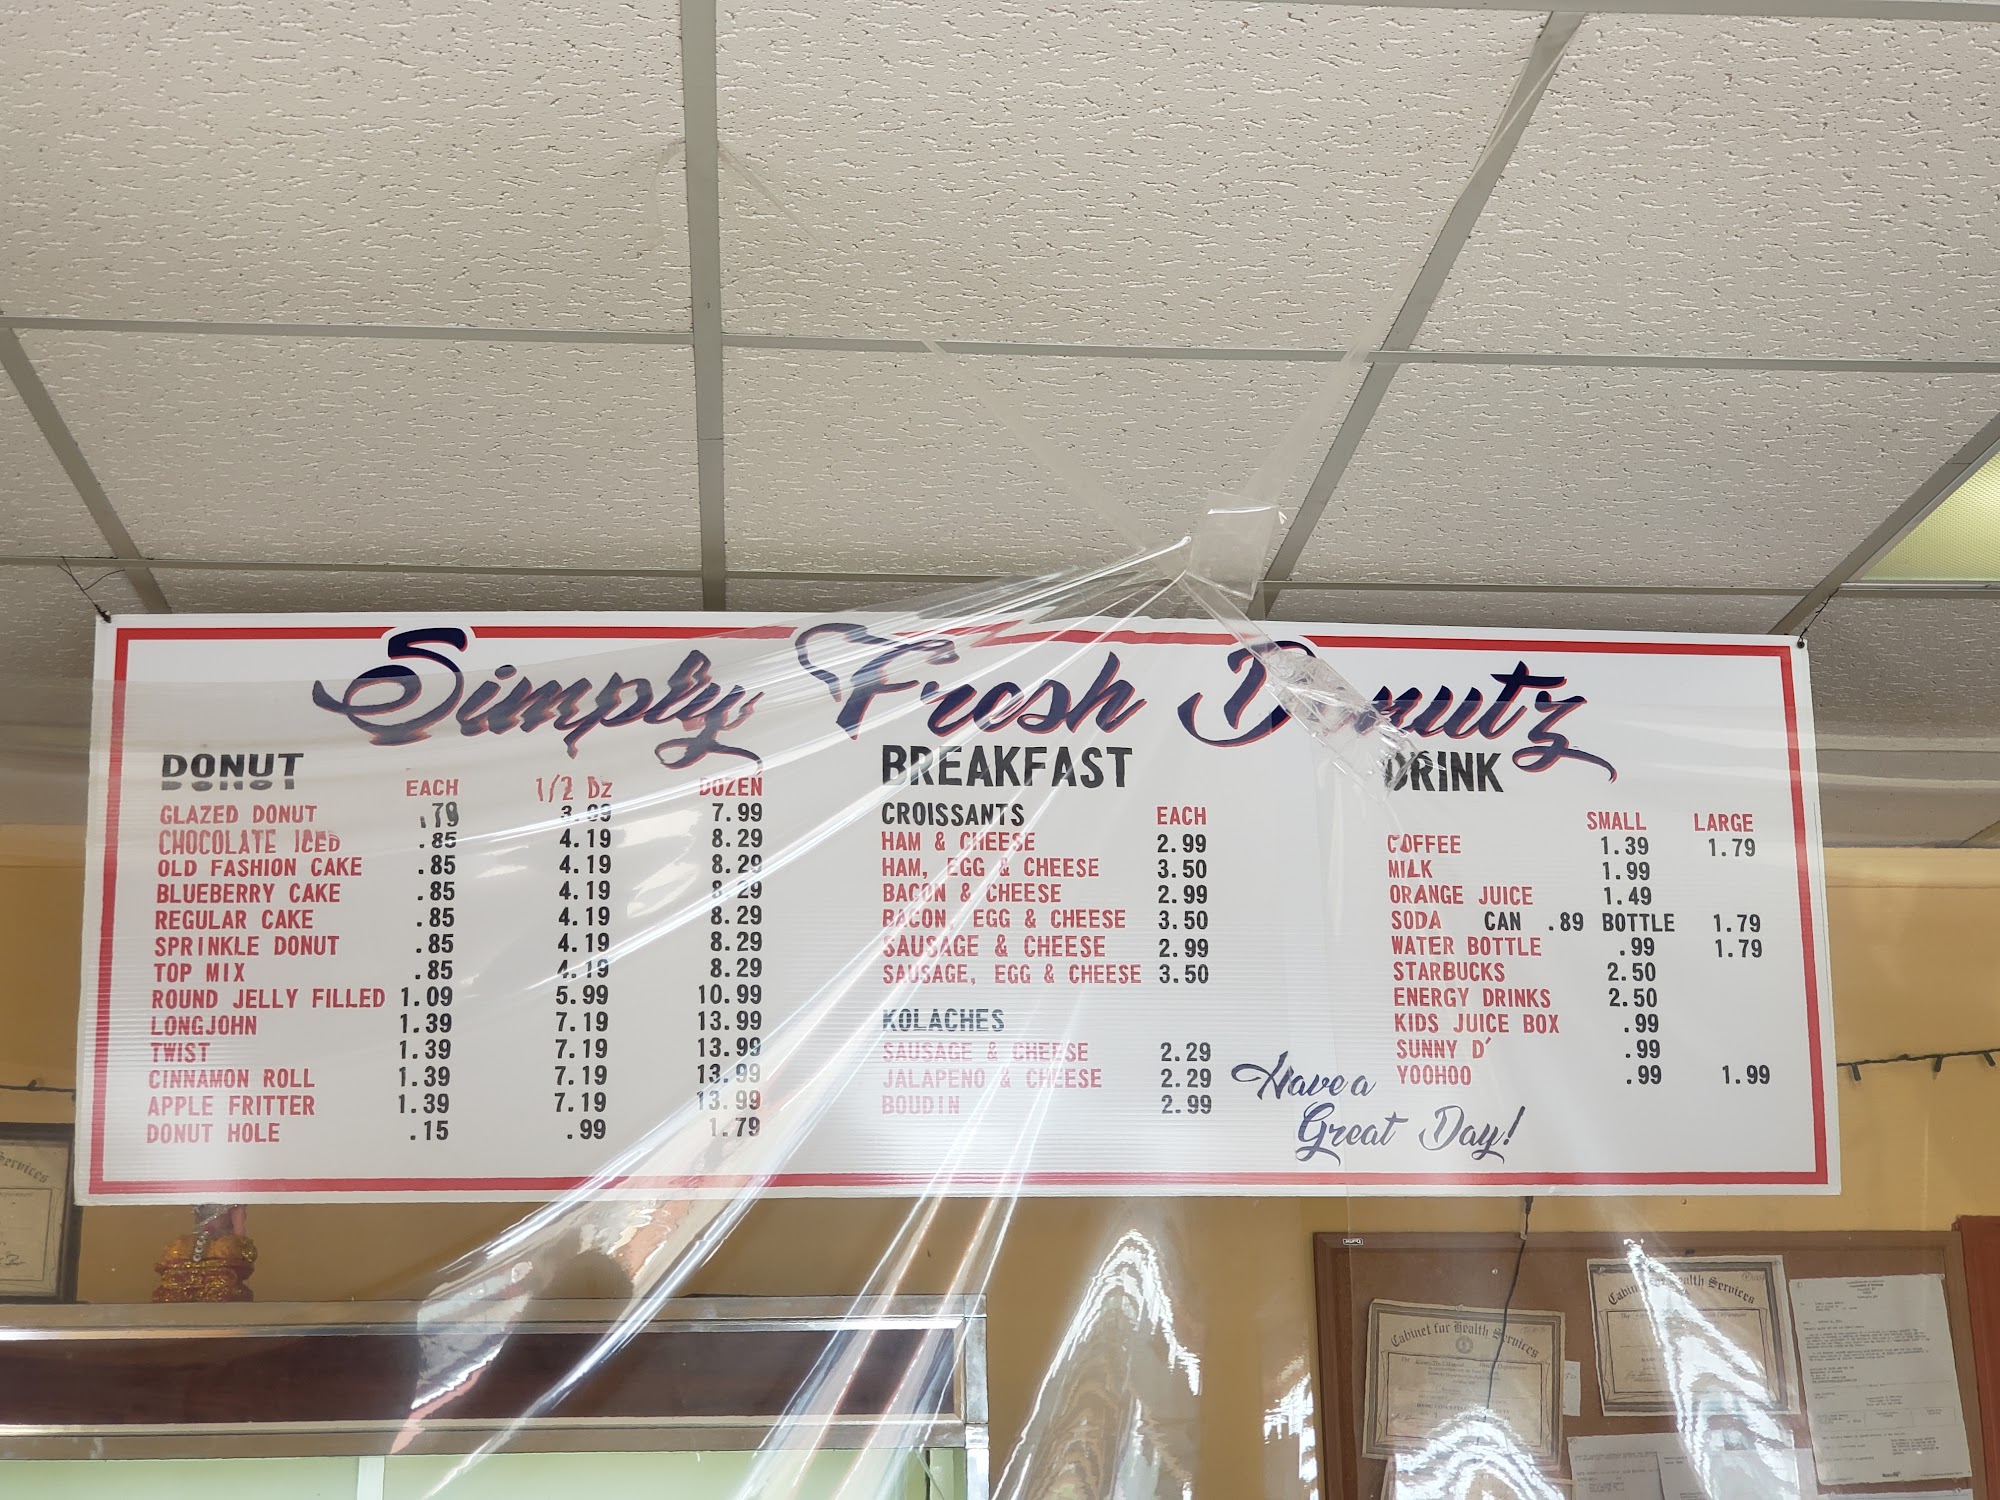 Simply Fresh Donutz
DONUT
EACH 1/2 Dz DOZEN
GLAZED DONUT .79 3.99 7.99
CHOCOLATE ICED .85 4.19 8.29
OLD FASHION CAKE .85 4.19 8.29
BLUEBERRY CAKE .85 4.19 8.29
REGULAR CAKE .85 4.19 8.29
SPRINKLE DONUT .85 4.19 8.29
TOP MIX .85 4.19 8.29
ROUND JELLY FILLED 1.09 5.99 10.99
LONGJOHN 1.39 7.19 13.99
TWIST 1.39 7.19 13.99
CINNAMON ROLL 1.39 7.19 13.99
APPLE FRITTER 1.39 7.19 13.99
DONUT HOLE .15 .99 1.79
BREAKFAST
CROISSANTS EACH
HAM & CHEESE 2.99
HAM, EGG & CHEESE 3.50
BACON & CHEESE 2.99
BACON, EGG & CHEESE 3.50
SAUSAGE & CHEESE 2.99
SAUSAGE, EGG & CHEESE 3.50
KOLACHES
SAUSAGE & CHEESE 2.29
JALAPENO & CHEESE 2.29
BOUDIN 2.99
DRINK
SMALL LARGE
COFFEE 1.39 1.79
MILK 1.99
ORANGE JUICE 1.49
SODA CAN .89 BOTTLE 1.79
WATER BOTTLE .99 1.79
STARBUCKS 2.50
ENERGY DRINKS 2.50
KIDS JUICE BOX .99
SUNNY D' .99
YOOHOO .99 1.99
Have a
Great Day!
Services
Cabinet for Health Services
Cabinet for Health Services